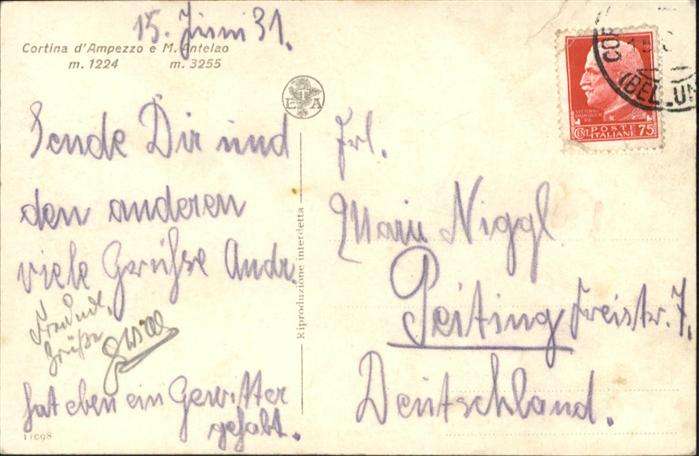 15. Juni 31.
Cortina d'Ampezzo e M. Antelao
m. 1224 m. 3255
Sende Dir und
den anderen
viele Grüsse Andr.
Freundl.
Grüße
hat eben ein Gewitter
gehabt.
11098
E A
Riproduzione interdetta
POSTE
ITALIANE
CENT 75
COR
(BELLUN
Frl.
Marie Niggl
Peiting Freistr. 7.
Deutschland.